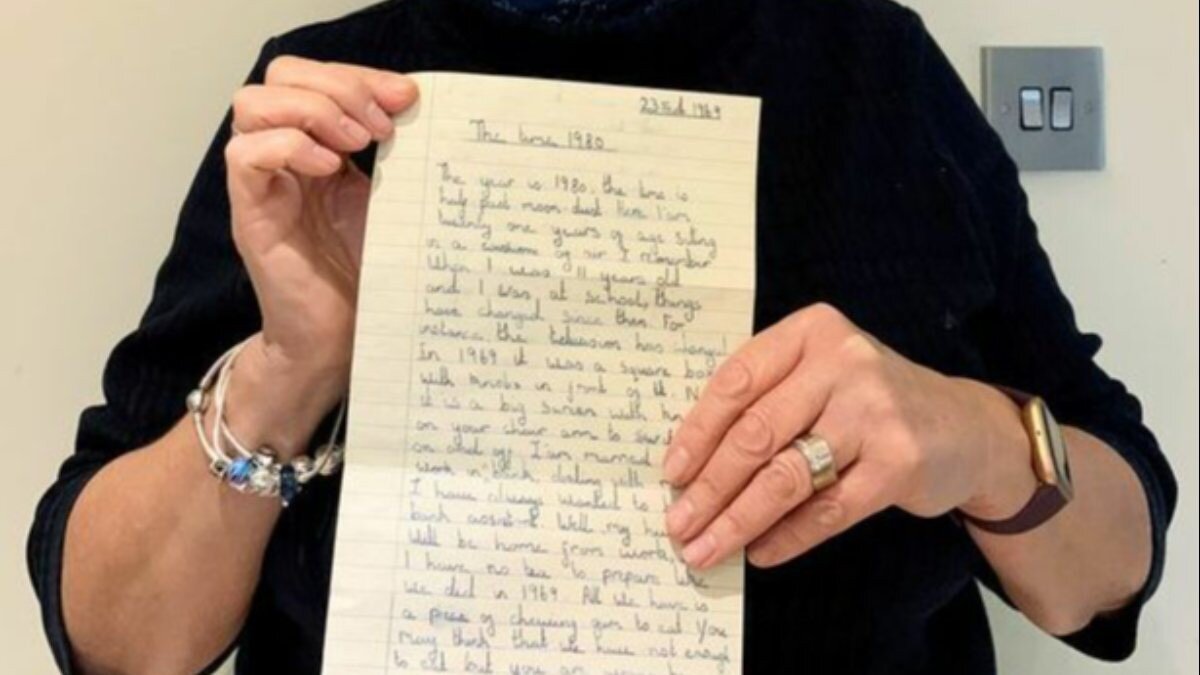 23 Feb 1969
The time 1980
The year is 1980, the time is
half past moon dust Here I am
twenty one years of age siting
in a of air I remember
When I was 11 years old
and I was at school, things
have changed since then. For
instance the has changed
In 1969 it was a square box
with knobs in front of it. N
it is a big with
on your chair arm to
on and off I am married
work in bank with
I have always wanted to
bank assistent. Well my
will be home from work,
I have no tea to prepare like
we did in 1969. All we have is
a of chewing gum to eat You
may think that we have not enough
to eat but you